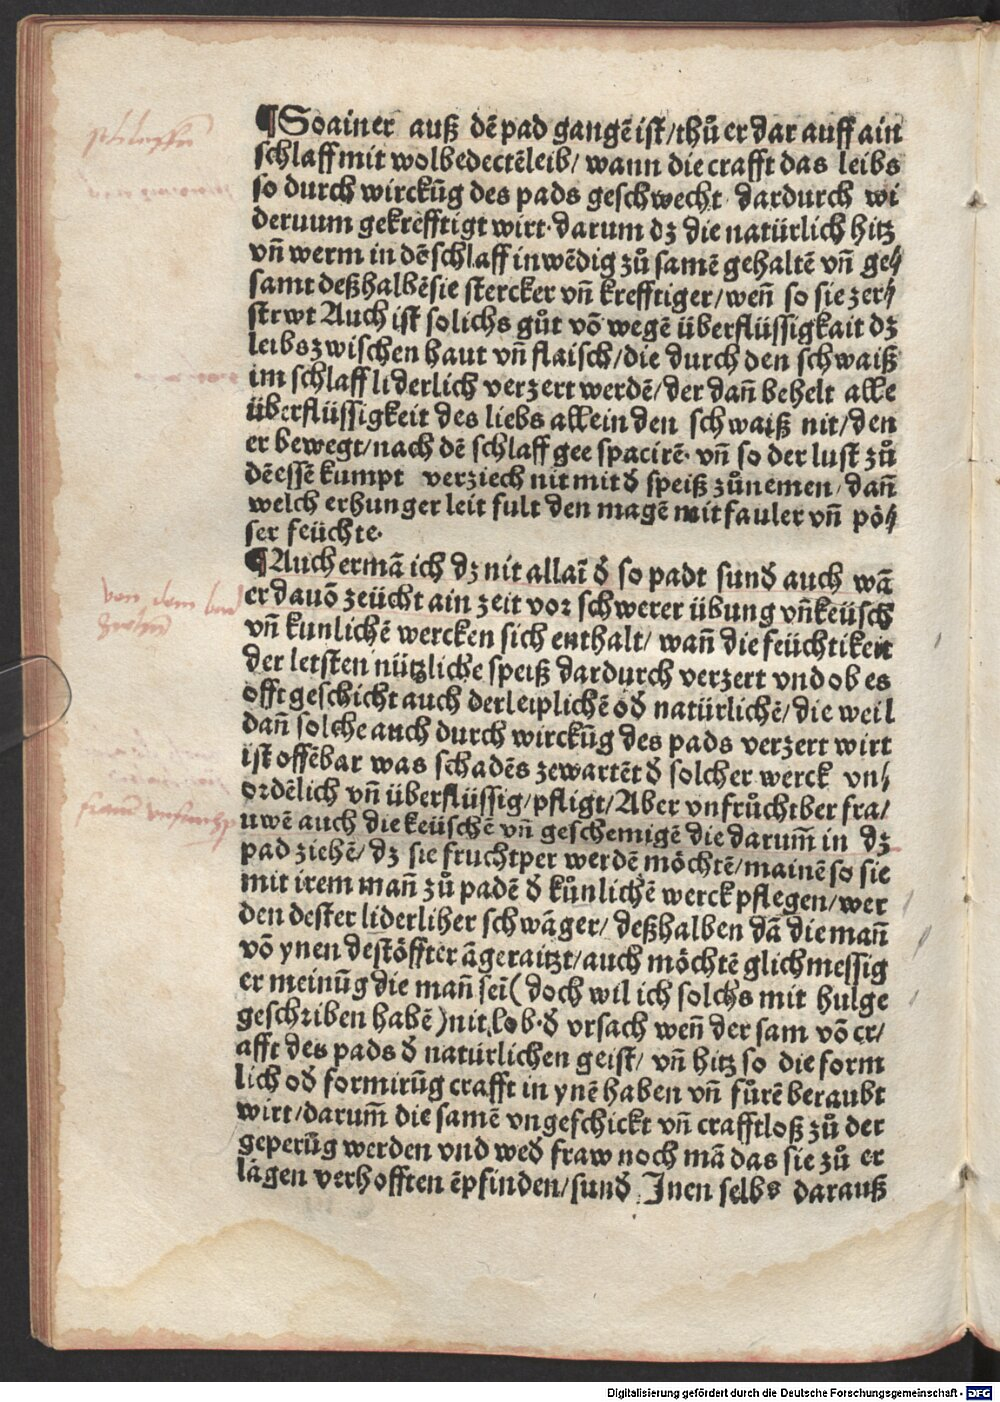 ¶Soainer auß dẽ pad gangẽ ist/thů er dar auff ain
schlaff mit wolbedectẽ leib/ wann die crafft das leibs
so durch wirckũg des pads geschwecht dardurch wi
deruum gekrefftigt wirt· darum dʒ die natürlich hitz
vñ werm in dẽ schlaff inwẽdig zů samẽ gehaltẽ vñ ge⸗
samt deßhalbẽ sie stercker vñ krefftiger/weñ so sie zer⸗
strwt Auch ist solichs gůt võ wegẽ überflüssigkait dʒ
leibs zwischen haut vñ flaisch/die durch den schwaiß
im schlaff liderlich verzert werdẽ/der dañ behelt alle
überflüssigkeit des liebs allein den schwaiß nit/den
er bewegt/nach dẽ schlaff gee spacirẽ· vñ so der lust zů
dẽ essẽ kumpt verziech nit mit đ speiß zůnemen/dañ
welch er hunger leit fult den magẽ mit fauler vñ pö⸗
ser feüchte·
¶Auch ermã ich dʒ nit allaĩ đ so padt sunđ auch wã
er dauõ zeücht ain zeit vor schwerer übung vñ keüsch
vñ kunlichẽ wercken sich enthalt/ wañ die feüchtikeit
der letsten nützliche speiß dardurch verzert vnd ob es
offt geschicht auch der leiplichẽ ođ natürlichẽ/die weil
dañ solche auch durch wirckũg des pads verzert wirt
ist offẽbar was schadẽs zewartẽt đ solcher werck vn⸗
ordẽlich vñ überflüssig/pfligt/Aber vnfrůchtber fra/
uwẽ auch die keüschẽ vñ geschemigẽ die darum̃ in dʒ
pad ziehẽ/dʒ sie fruchtper werdẽ möchtẽ/mainẽ so sie
mit irem mañ zů padẽ đ kůnlichẽ werck pflegen/wer
den dester liderliher schwãger/ deßhalben dã die mañ
võ ynen destöffter ãgeraitzt/auch möchtẽ glichmessig
er meinũg die mañ seĩ(doch wil ich solchs mit hulge
geschriben habẽ)nit lob·đ vrsach weñ der sam võ cr/
afft des pads đ naturlichen geist/ vñ hitz so die form
lich ođ formirũg crafft in ynẽ haben vñ fůrẽ beraubt
wirt/darum̃ die samẽ vngeschickt vñ crafftloß zů der
geperũg werden vnd weđ fraw noch mã das sie zů er
lãgen verhofften ẽpfinden/sunđ Inen selbs darauß
von dem bad
Digitalisierung gefördert durch die Deutsche Forschungsgemeinschaft - DFG